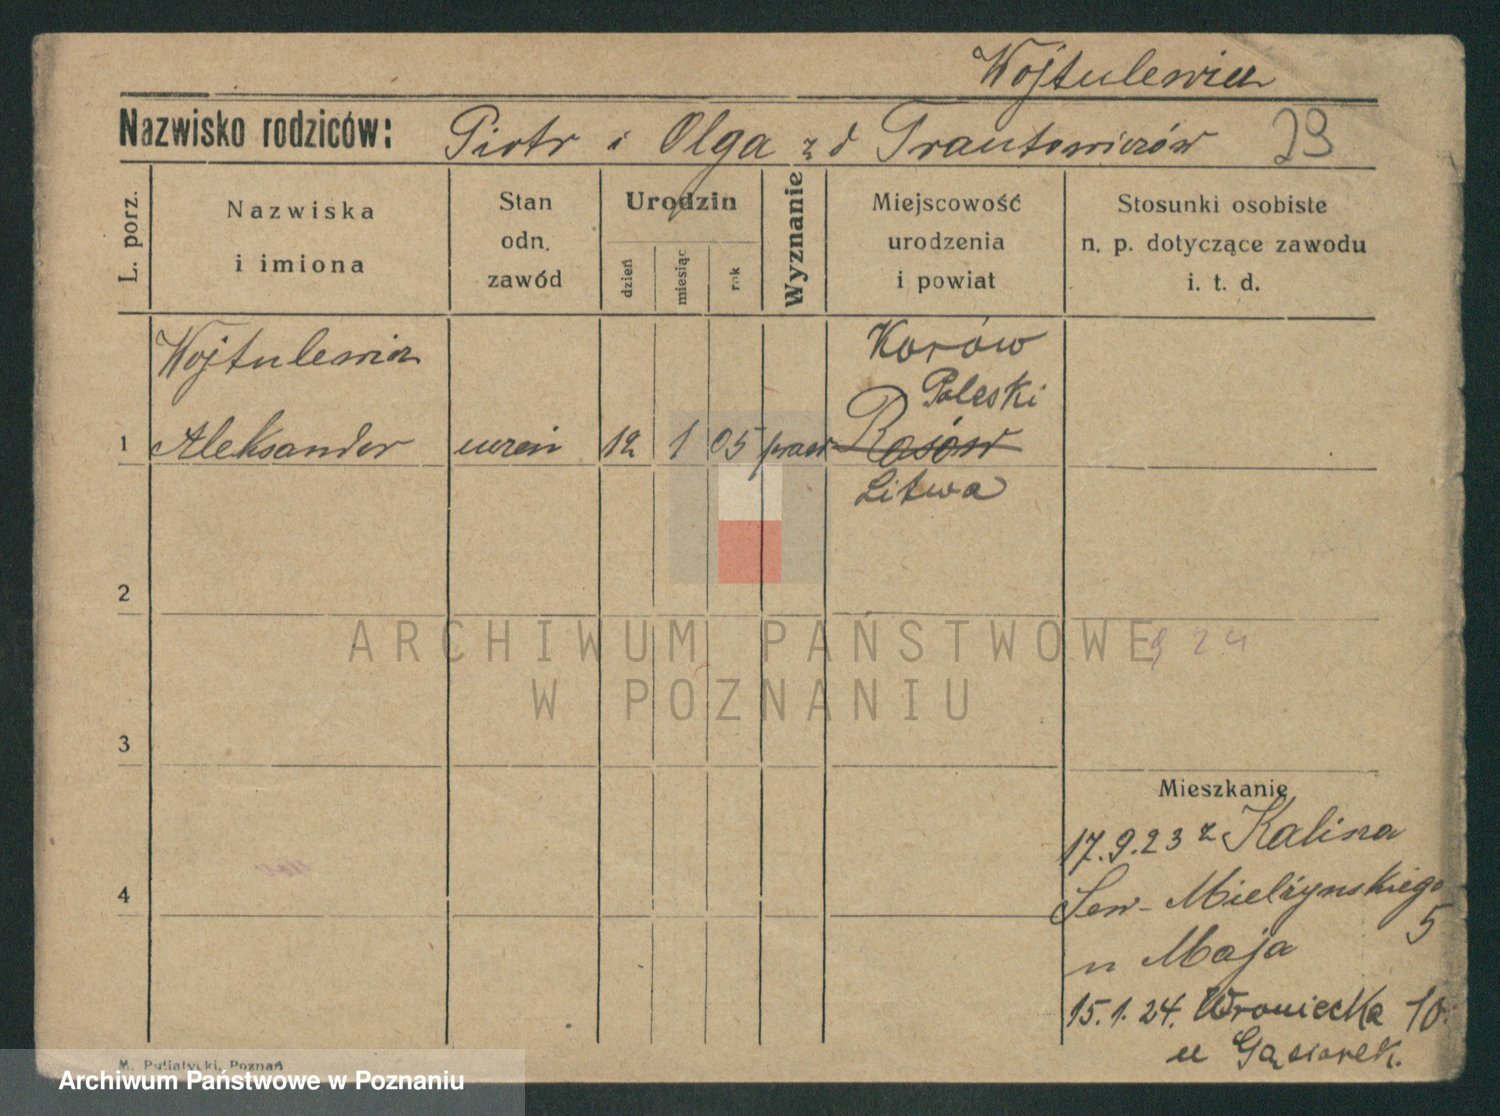 Wojtulewicz
Nazwisko rodziców: Piotr i Olga z d Trautowiczów 29
L. porz.
Nazwiska
i imiona
Stan
odn.
zawód
Urodzin
dzień
miesiąc
rok
Wyznanie
Miejscowość
urodzenia
i powiat
Stosunki osobiste
n. p. dotyczące zawodu
i. t. d.
Wojtulewicz
Korów
Poleski
1 Aleksander uczeń 12 1 05 praw Rosów
Litwa
2
ARCHIWUM PAŃSTWOWE
W POZNANIU
924
3
Mieszkanie
17.9.23 z Kalisza
4
Sew. Mielżyńskiego
5
u Maja
15.1.24. Wroniecka 10.
u Gąsiorek.
M. Putiatycki, Poznań
Archiwum Państwowe w Poznaniu